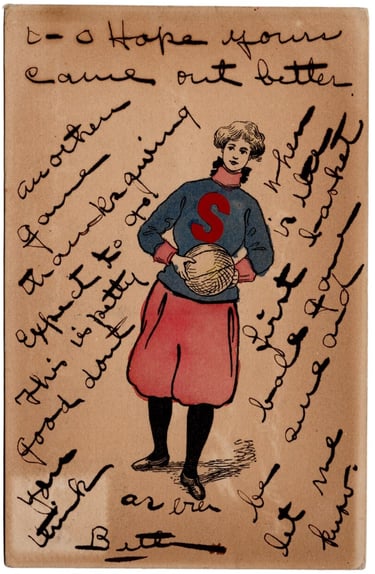 0-0 Hope yours
came out better.
another
game
thanksgiving
Expect to go.
This is pretty
good dont
you
think
When
is the
first basket
ball game
be sure and
let me
know.
as ever
S